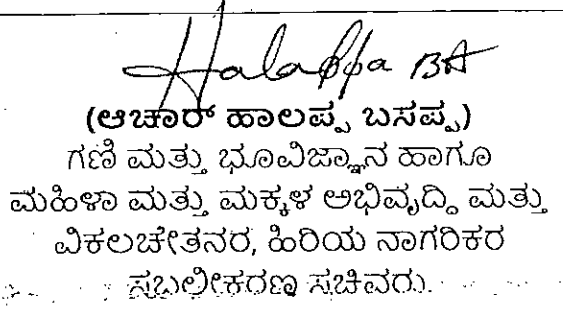 Halappa BA
(ಆಚಾರ್ ಹಾಲಪ್ಪ ಬಸಪ್ಪ)
ಗಣಿ ಮತ್ತು ಭೂವಿಜ್ಞಾನ ಹಾಗೂ
ಮಹಿಳಾ ಮತ್ತು ಮಕ್ಕಳ ಅಭಿವೃದ್ದಿ ಮತ್ತು
ವಿಕಲಚೇತನರ, ಹಿರಿಯ ನಾಗರಿಕರ
ಸಬಲೀಕರಣ ಸಚಿವರು.